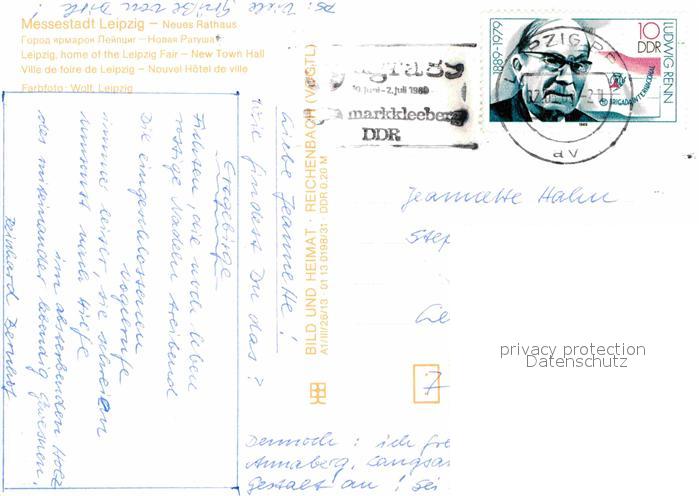 PS: Viele Grüße von Dirk!
Messestadt Leipzig – Neues Rathaus
Город ярмарок Лейпциг – Новая Ратуша
Leipzig, home of the Leipzig Fair – New Town Hall
Ville de foire de Leipzig – Nouvel Hôtel de ville
Farbfoto: Wolf, Leipzig
Liebe Jeannette!
Wie findest Du das?
Erzgebirge
Fichten, die noch leben
rostige Nadeln treibend
Die eingeschlossenen
Vogelrufe
immer leiser, sie schreien
stumm nach Hilfe
im absterbenden Holz
des miteinander lebendig Gewesnen.
Reinhard Bernhof
BILD UND HEIMAT · REICHENBACH (VOGTL)
A1/III/26/13 01 13 0198/31 DDR 0,20 M
agra 89
10. Juni - 2. Juli 1989
markkleeberg
DDR
LEIPZIG BPF
av
10
DDR
LUDWIG RENN
1889-1979
BRIGADA INTERNACIONAL
1989
Jeannette Hahn
Step
7
privacy protection
Datenschutz
Dennoch: ich
Annaberg, Langsam
gestalt an! Sei